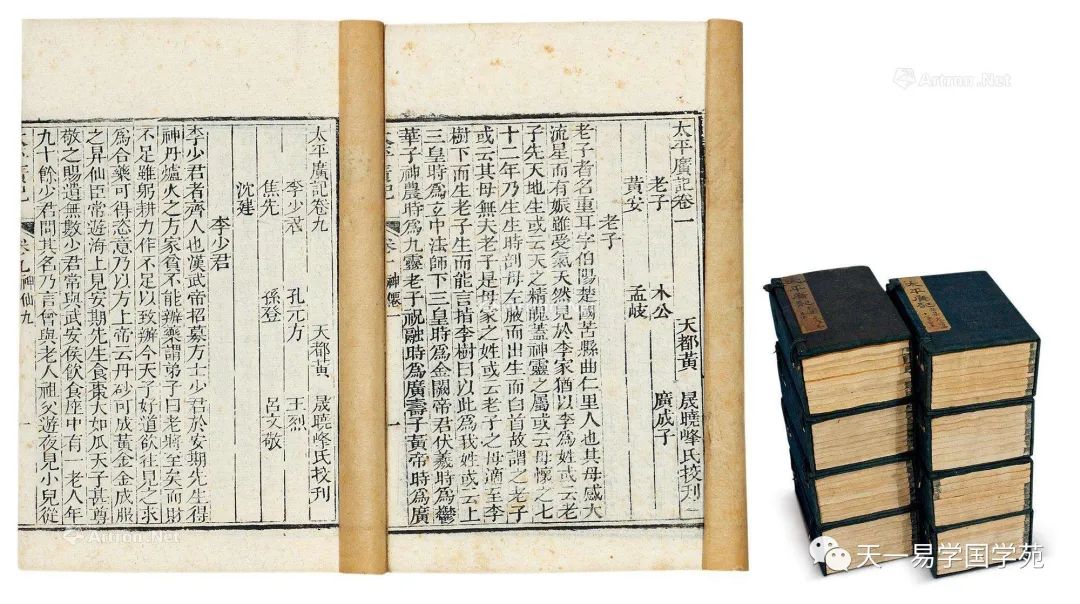 太平廣記卷一 天都黃 晟曉峰氏校刊
老子 木公 廣成子
黃安 孟岐
老子
老子者名重耳字伯陽楚國苦縣曲仁里人也其母感大
流星而有娠雖受氣天然見於李家猶以李為姓或云老
子先天地生或云天之精魄蓋神靈之屬或云母懷之七
十二年乃生生時剖母左腋而出生而白首故謂之老子
或云其母無夫老子是母家之姓或云老子之母適至李
樹下而生老子生而能言指李樹曰以此為我姓或云上
三皇時為玄中法師下三皇時為金闕帝君伏羲時為鬱
華子神農時為九靈老子祝融時為廣壽子黃帝時為廣
卷一 神僊一 一
太平廣記卷九 天都黃 晟曉峰氏校刊
李少君 孔元方 王烈
焦先 孫登 呂文敬
沈建
李少君
李少君者齊人也漢武帝招募方士少君於安期先生得
神丹爐火之方家貧不能辦藥謂弟子曰老將至矣而財
不足雖躬耕力作不足以致辦今天子好道欲往見之求
為合藥可得恣意乃以方上帝云丹砂可成黃金金成服
之昇仙臣常遊海上見安期先生食棗大如瓜天子甚尊
敬之賜遺無數少君常與武安侯飲食座中有一老人年
九十餘少君問其名乃言曾與老人祖父遊夜見小兒從
卷九 神仙九 一
太平廣記
太平廣記
Artron.Net
Artron.Net
天一易学国学苑